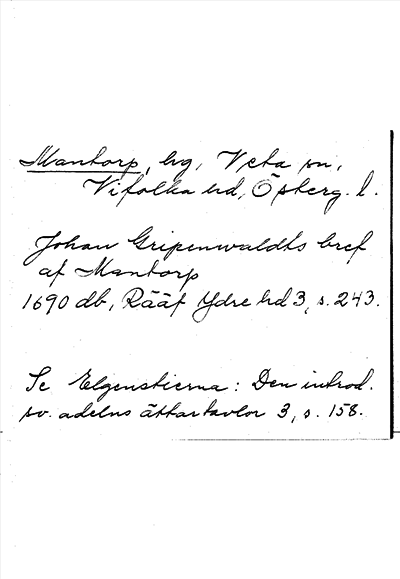 Mantorp, hg, Veta sn,
Vifolka hd, Österg. l.
Johan Gripenwaldts bref
af Mantorp
1690 db, Rääf Ydre hd 3, s. 243.
Se Elgenstierna: Den introd.
sv. adelns ättartavlor 3, s. 158.